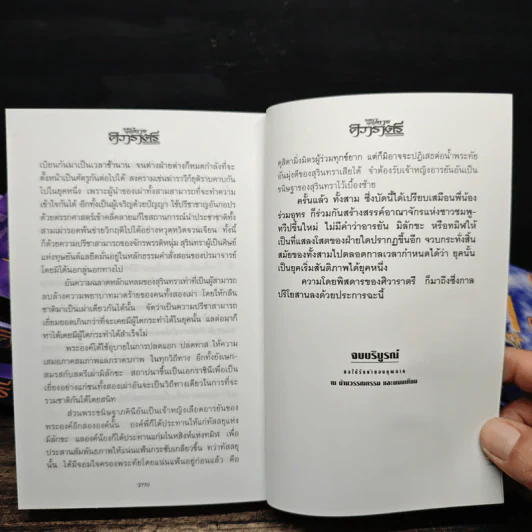 ศิวาราตรี
เบียนกันมาเป็นเวลาช้านาน จนต่างฝ่ายต่างก็หมดกำลังที่จะ
ตั้งหน้าเป็นศัตรูกันต่อไปได้ สงครามเช่นว่าราวีก็ยุติราบคาบกัน
ไปในยุคหนึ่ง เพราะผู้นำของเผ่าทั้งสามสามารถที่จะทำความ
เข้าใจกันได้ อีกทั้งเป็นผู้เจริญด้วยปัญญา ใช้ปรีชาชาญอันกอปร
ด้วยตรรกศาสตร์เข้าคลี่คลายแก้ไขสถานการณ์นำประชาชาติทั้ง
สามเผ่ารอดพ้นช่วยวิกฤติไปได้อย่างหวุดหวิดจวนเจียน ทั้งนี้
ก็ด้วยความปรีชาสามารถของจักรพรรดิหนุ่ม สุรินทราผู้เป็นศิษย์
แห่งทุษยันต์และยึดมั่นอยู่ในหลักธรรมคำสั่งสอนของปรมาจารย์
โดยมิได้นอกลู่นอกทางไป
ความฉลาดหลักแหลมของสุรินทราเท่าที่เป็นผู้สามารถ
ลบล้างความพยาบาทมาดร้ายของคนทั้งสองเผ่า โดยให้กลืน
ชาติมาเป็นเผ่าเดียวกันได้นั้น จัดว่าเป็นความปรีชาสามารถ
เยี่ยมยอดเกินกว่าที่จะเคยมีผู้ใดกระทำได้ในยุคนั้น แต่ต่อมาก็
หาได้เคยมีผู้ใดกระทำได้สำเร็จไม่
พระองค์ได้ใช้อุบายในการปลดแอก ปลดทาส ให้ความ
เสมอภาคสมภาพและภราดรภาพ ในทุกวิถีทาง อีกทั้งยังเษก-
สมรสกับสตรีเผ่ามิลักขะ สถาปนาขึ้นเป็นเอกราชินีเพื่อเป็น
เยี่ยงอย่างแก่ชนทั้งสองเผ่าอันจะเป็นวิถีทางเดียวในการที่จะ
รวมชาติกันได้โดยสนิท
ส่วนพระขนิษฐาภคินีอันเป็นเจ้าหญิงเลือดอารยันของ
พระองค์อีกสององค์นั้น องค์พี่ก็ได้ประทานให้แก่ทัสสยุแห่ง
มิลักขะ และองค์น้องก็ได้ประทานแก่มหสิงห์แห่งทมิฬ เพื่อ
ประสานสัมพันธภาพให้แน่นแฟ้นกระชับเกลียวขึ้น ทว่าทัสสยุ
นั้น ได้มีจอมใจครองพระทัยโดยแน่นแฟ้นอยู่ก่อนแล้ว คือ
ศิวาราตรี
ดุสิตามิ่งมิตรผู้ร่วมทุกข์ยาก แต่ก็มิอาจจะปฏิเสธต่อน้ำพระทัย
อันมุ่งดีของสุรินทราเสียได้ จำต้องรับเจ้าหญิงอารยันอันเป็น
ขนิษฐาของสุรินทราไว้เบื้องซ้าย
ครั้นแล้ว ทั้งสาม ซึ่งบัดนี้ได้เปรียบเสมือนพี่น้อง
ร่วมอุทร ก็ร่วมกันสร้างสรรค์อาณาจักรแห่งชาวชมพู-
ทวีปขึ้นใหม่ ไม่มีคำว่าอารยัน มิลักขะ หรือทมิฬให้
เป็นที่แสลงโสตของฝ่ายใดปรากฏขึ้นอีก จวบกระทั่งสิ้น
สมัยของทั้งสามไปตลอดกาลเวลากำหนดได้ว่า ยุคนั้น
เป็นยุคเริ่มสันติภาพได้ยุคหนึ่ง
ความโดยพิสดารของศิวาราตรี ก็มาถึงซึ่งกาล
ปริโยสานลงด้วยประการฉะนี้
จบบริบูรณ์
ณ บ้านวรรณกรรม